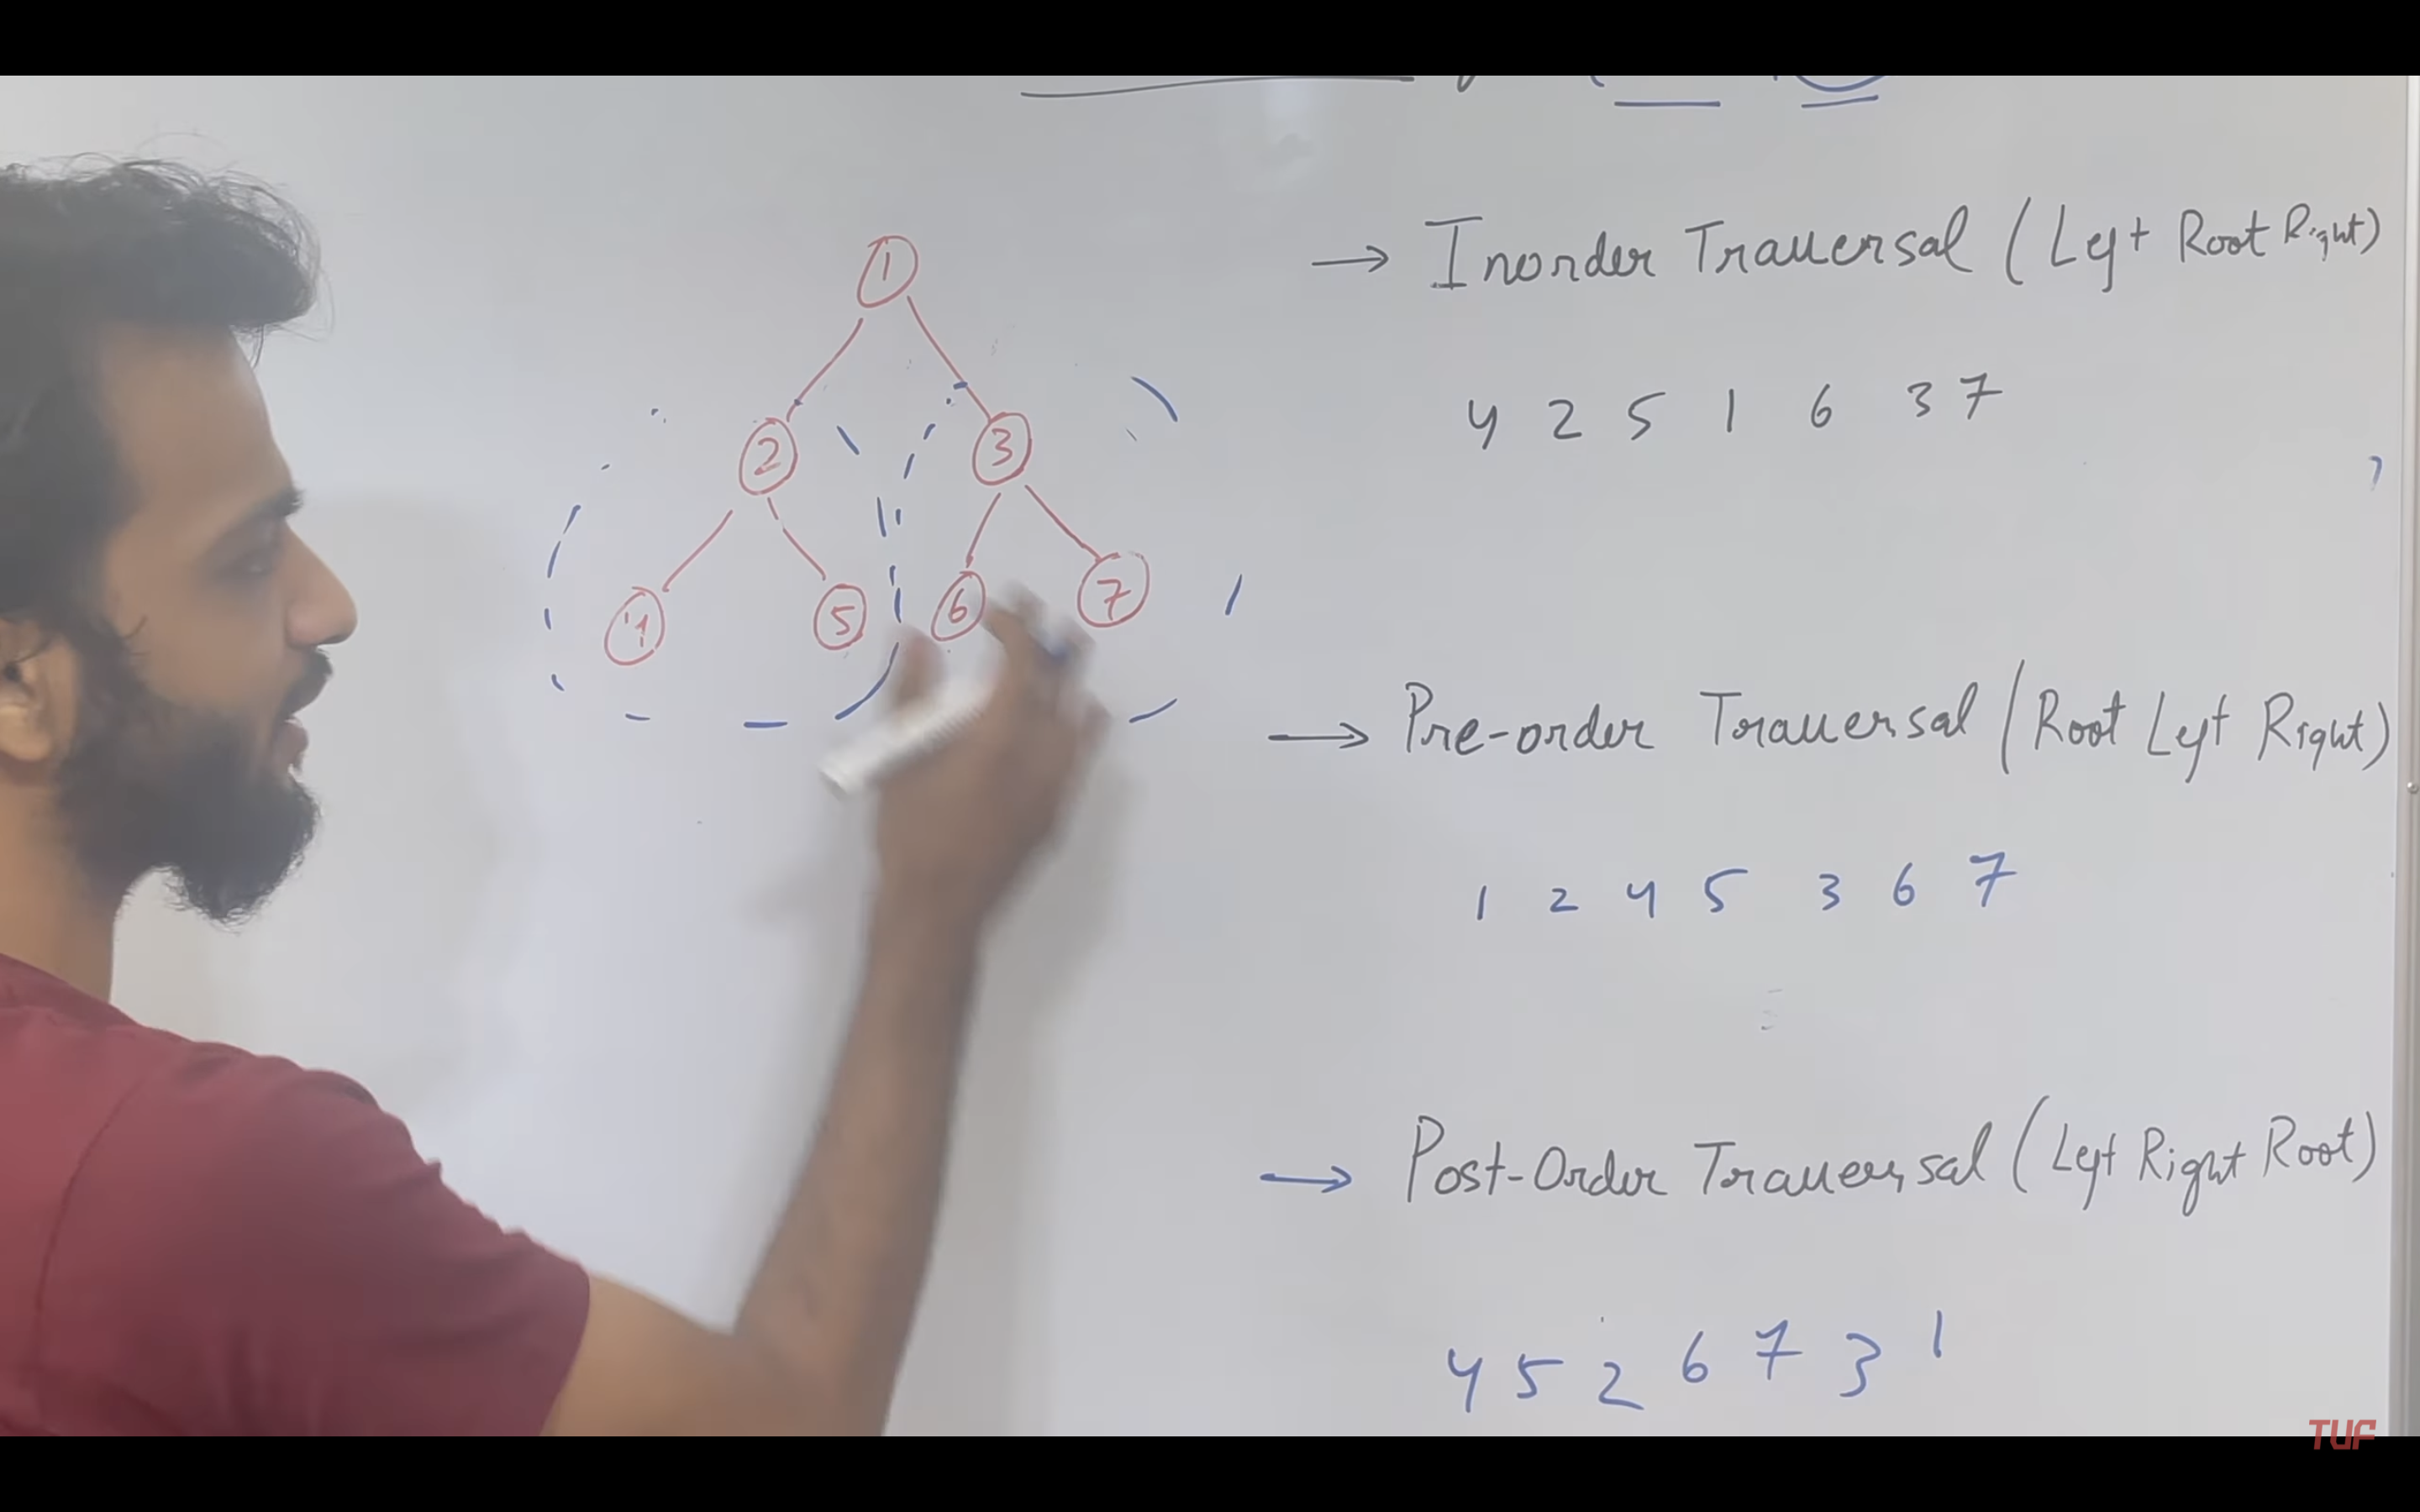 → Inorder Traversal (Left Root Right)
4 2 5 1 6 3 7
→ Pre-order Traversal (Root Left Right)
1 2 4 5 3 6 7
→ Post-Order Traversal (Left Right Root)
4 5 2 6 7 3 1
1
2 3
4 5 6 7
TUF